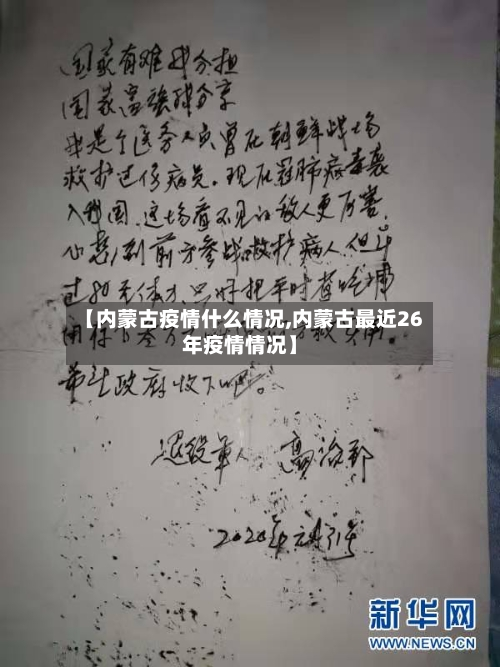 国家有难我分担
国家富强我分享
我是个医务人员曾在朝鲜战场
救护过伤病员.现在冠肺病毒袭
入我国.这场看不见的敌人更厉害.
心想到前方参战救护病人.但年
过80无体力.只好把平时省吃
【内蒙古疫情什么情况,内蒙古最近26
年疫情情况】
希望政府收下吧。
退役军人 高洛郅
2020年元月31号
新华网
WWW.NEWS.CN